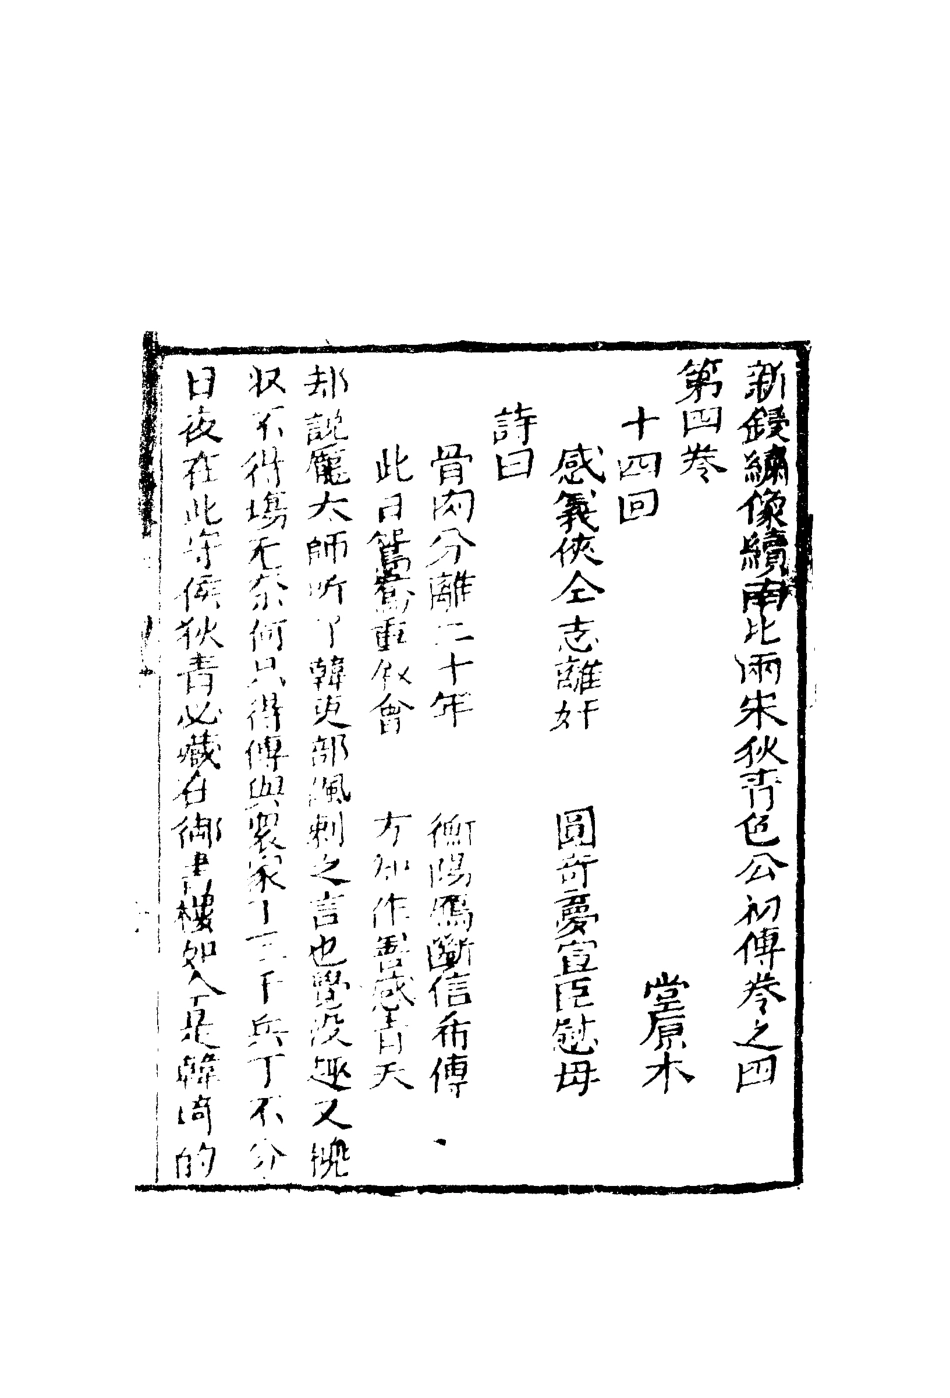 新鋟繡像續南北兩宋狄青包公初傳卷之四
第四卷
十四回
堂原木
感義俠仝志離奸　圓奇夢宣臣慰母
詩曰
骨肉分離二十年　衡陽鴈斷信希傳
此日鴛鴦重敘會　方知作善感青天
却說龐太師听了韓吏部諷刺之言也覺没趣又搜
収不得塲无奈何只得傳與衆家丁三千兵丁不分
日夜在此守候狄青必藏在御書樓如人是韓琦的